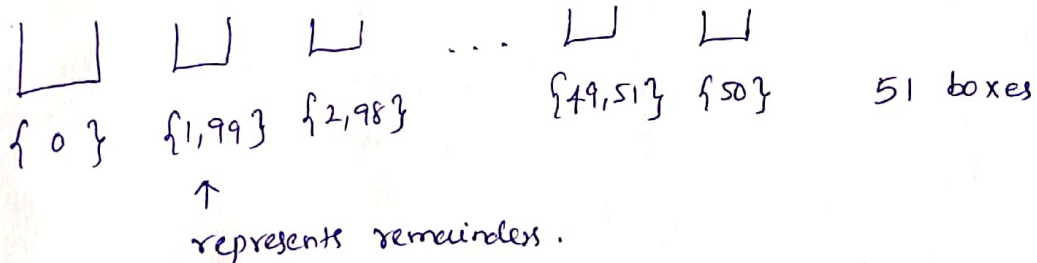 . . .
{0} {1,99} {2,98} {49,51} {50} 51 boxes
↑
represents remainders.